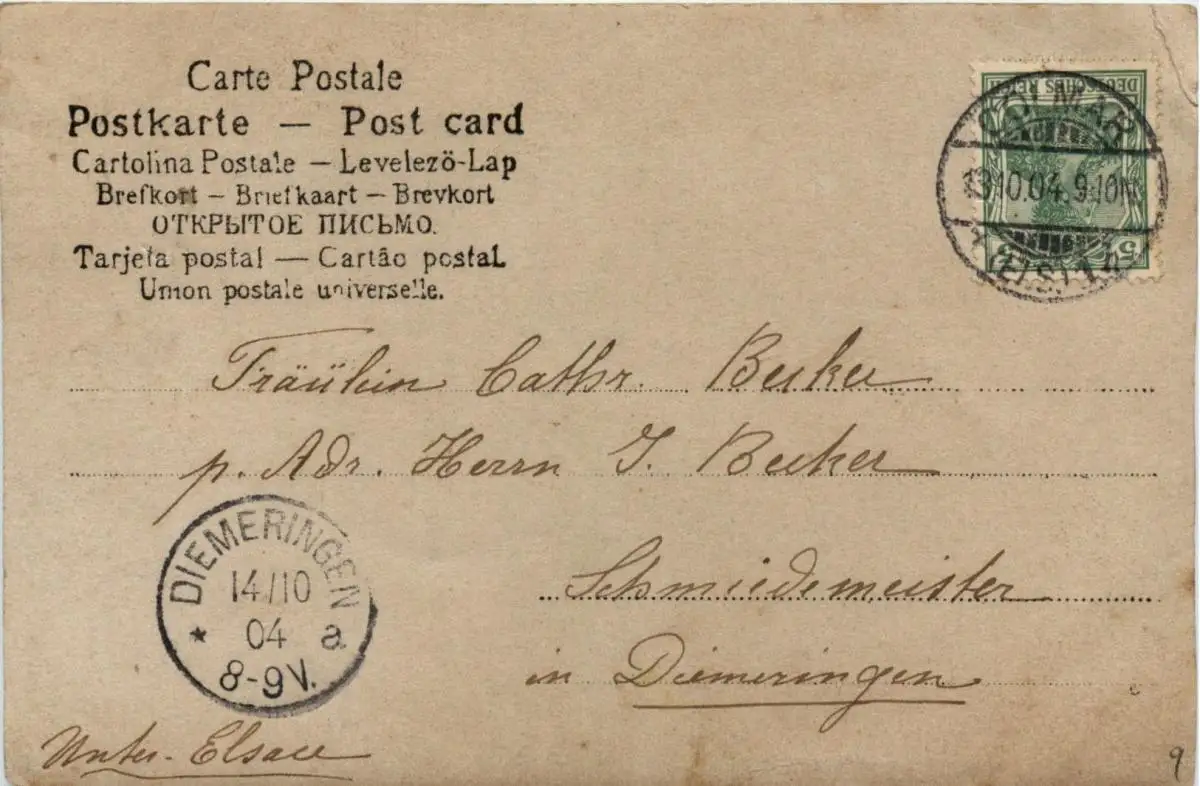 Carte Postale
Postkarte — Post card
Cartolina Postale — Levelező-Lap
Brefkort — Briefkaart — Brevkort
ОТКРЫТОЕ ПИСЬМО.
Tarjeta postal — Cartão postal
Union postale universelle.
DEUTSCHES REICH
5
COLMAR
13.10.04. 9-10N
(ELS) 1
Fräulein Cathr. Becker
p. Adr. Herrn J. Becker
Schmiedemeister
in Diemeringen
DIEMERINGEN
14/10
04 a
8-9V.
Unter-Elsace
9